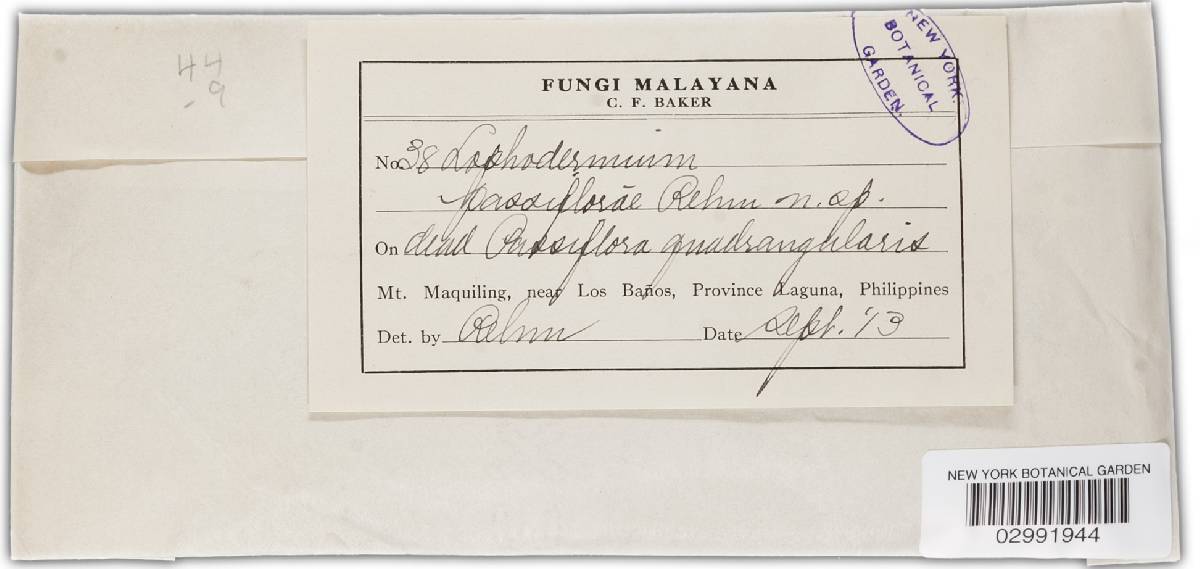 44
- 9
FUNGI MALAYANA
C. F. BAKER
NEW YORK
BOTANICAL
GARDEN.
No. 38 Lophodermium
passiflorae Rehm n. sp.
On dead Passiflora quadrangularis
Mt. Maquiling, near Los Baños, Province Laguna, Philippines
Det. by Rehm Date Sept. '13
NEW YORK BOTANICAL GARDEN
02991944